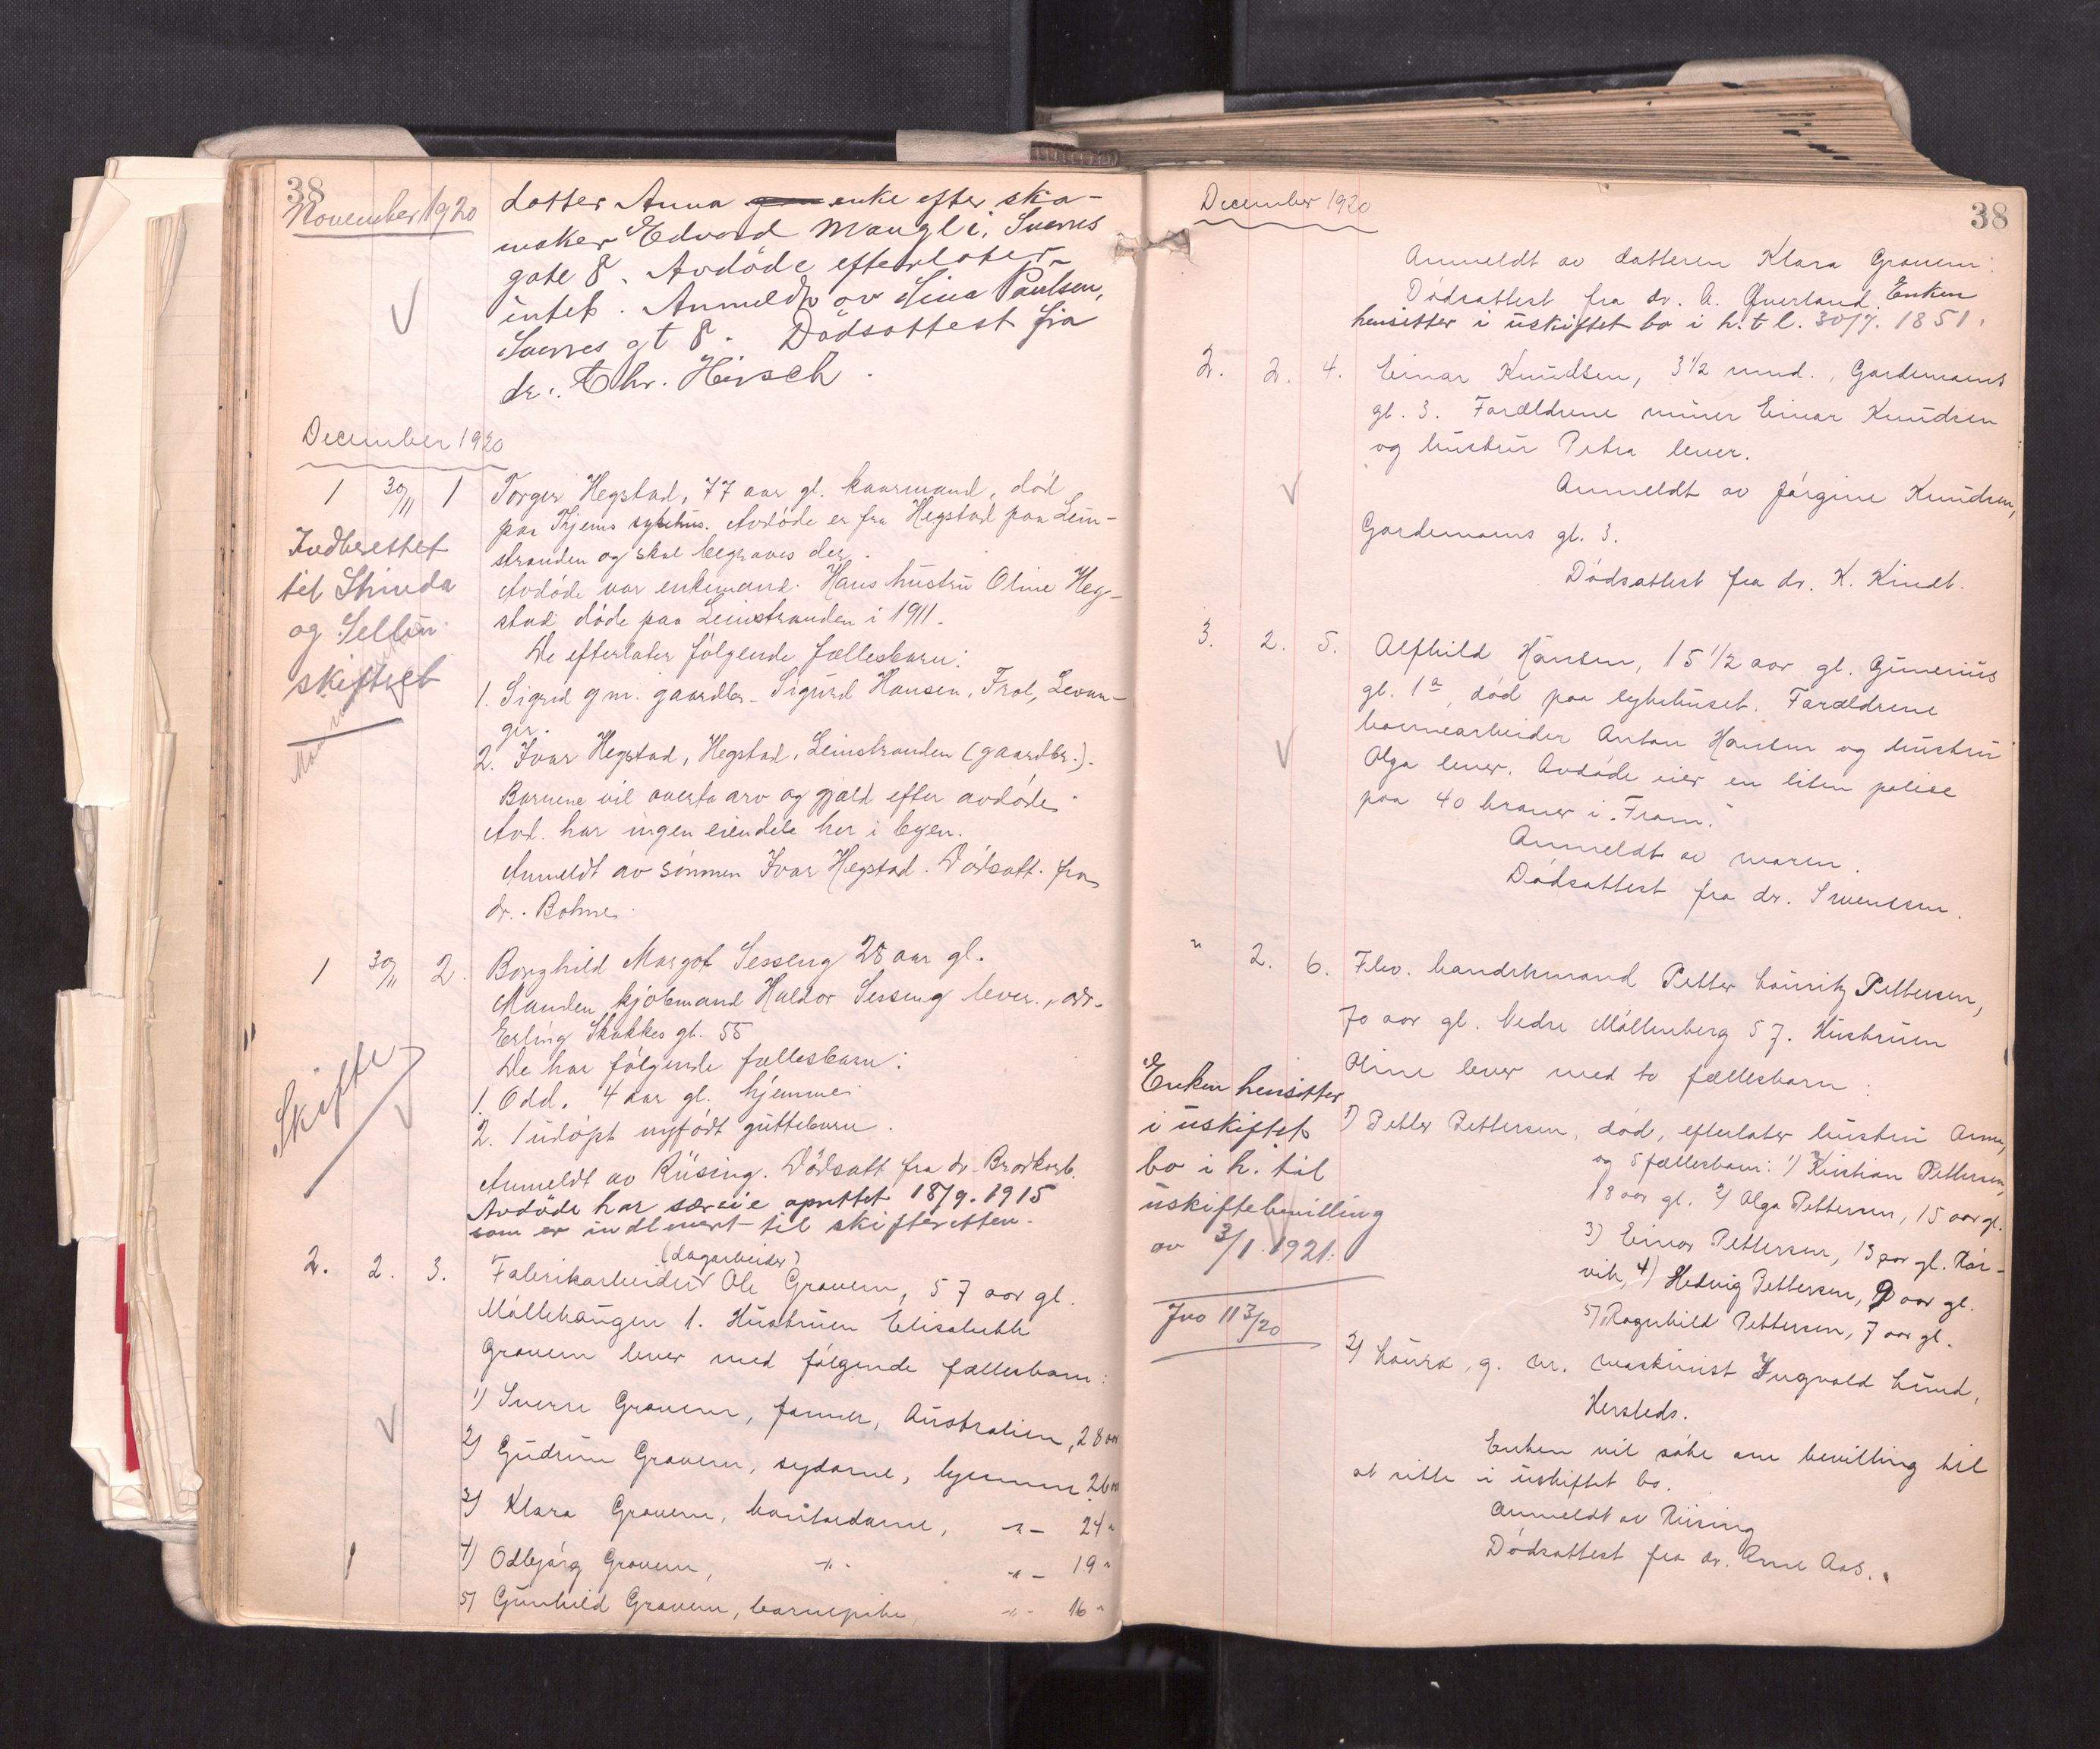 38
November 1920
datter Anna enke efter sko-
maker Edvard Mangli, Sverres
gate 8. Avdöde efterlater
intet. Anmeldt av Lina Paulsen,
Sverres gt 8. Dödsattest fra
dr. Chr. Hirsch.
December 1920
1 30/11 1 Torger Hegstad, 77 aar gl. kaarmand, död
paa Thjems sykehus. Avdöde er fra Hegstad paa Lein-
stranden og skal begraves der.
Indberettet
til Strinda
og Selbu
skifteret
Avdöde var enkemand. Hans hustru Oline Heg-
stad döde paa Leinstranden i 1911.
De efterlater fölgende fællesbarn:
1. Sigrid gm. gaardbr. Sigurd Hansen, Frol, Levan-
ger.
2. Ivar Hegstad, Hegstad, Leinstranden (gaardbr.).
Barnene vil overta arv og gjæld efter avdöde.
Avd. har ingen eiendele her i byen.
Anmeldt av sönnen Ivar Hegstad. Dödsatt. fra
dr. Bohne.
1 30/11 2. Borghild Margot Sesseng 28 aar gl.
Manden, kjöbmand Haldor Sesseng lever, adr.
Erling Skakkes gt. 55
Skifte
De har fölgende fællesbarn:
1. Odd, 4 aar gl. hjemme
2. 1 udöpt nyfödt guttebarn.
Anmeldt av Riising. Dödsatt. fra dr. Brodkorb.
Avdöde har særeie oprettet 18/9. 1915
som er indlevert til skifteretten.
2. 2. 3. Fabrikarbeider (dagarbeider) Ole Gravem, 57 aar gl.
Möllehaugen 1. Hustruen Elisabeth
Gravem lever med fölgende fællesbarn:
1) Sverre Gravem, farmer, Australien, 28 aar
2) Gudrun Gravem, sydame, hjemme 26 aar
3) Klara Gravem, kontordame, -"- 24 "
4) Odbjörg Gravem, -"- -"- 19 "
5) Gunhild Gravem, barnepike, -"- 16 "
December 1920
38
Anmeldt av datteren Klara Gravem.
Dödsattest fra dr. A. Qverland. Enken
hensitter i uskiftet bo i h. t l. 30/7. 1851.
2. 2. 4. Einar Knudsen, 3 1/2 mnd., Gardemoens
gt. 3. Forældrene murer Einar Knudsen
og hustru Petra lever.
Anmeldt av Jörgine Knudsen,
Gardemoens gt. 3.
Dödsattest fra dr. K. Kindt.
3. 2. 5. Alfhild Hansen, 15 1/2 aar gl. Gunerius
gt. 1a, död paa sykehuset. Forældrene
havnearbeider Anton Hansen og hustru
Olga lever. Avdöde eier en liten polise
paa 40 kroner i "Fram."
Anmeldt av moren.
Dödsattest fra dr. Svendsen.
" 2. 6. Fhv. handelsmand Petter Lauritz Pettersen,
70 aar gl. Nedre Möllenberg 57. Hustruen
Oline lever med to fællesbarn:
Enken hensitter
i uskiftet
bo i h. til
uskiftebevilling
av 3/1. 1921.
Jno 113/20
1) Petter Pettersen, död, efterlater hustru Anna,
og 5 fællesbarn: 1) Kristian Pettersen,
18 aar gl. 2) Olga Pettersen, 15 aar gl.
3) Einar Pettersen, 13 aar gl. Rör-
vik, 4) Hedvig Pettersen, 9 aar gl.
5) Ragnhild Pettersen, 7 aar gl.
2) Laura, g. m. maskinist Ingvald Lund,
Hersteds.
Enken vil söke om bevilling til
at sitte i uskiftet bo.
Anmeldt av Riising
Dödsattest fra dr. Arne Aas.